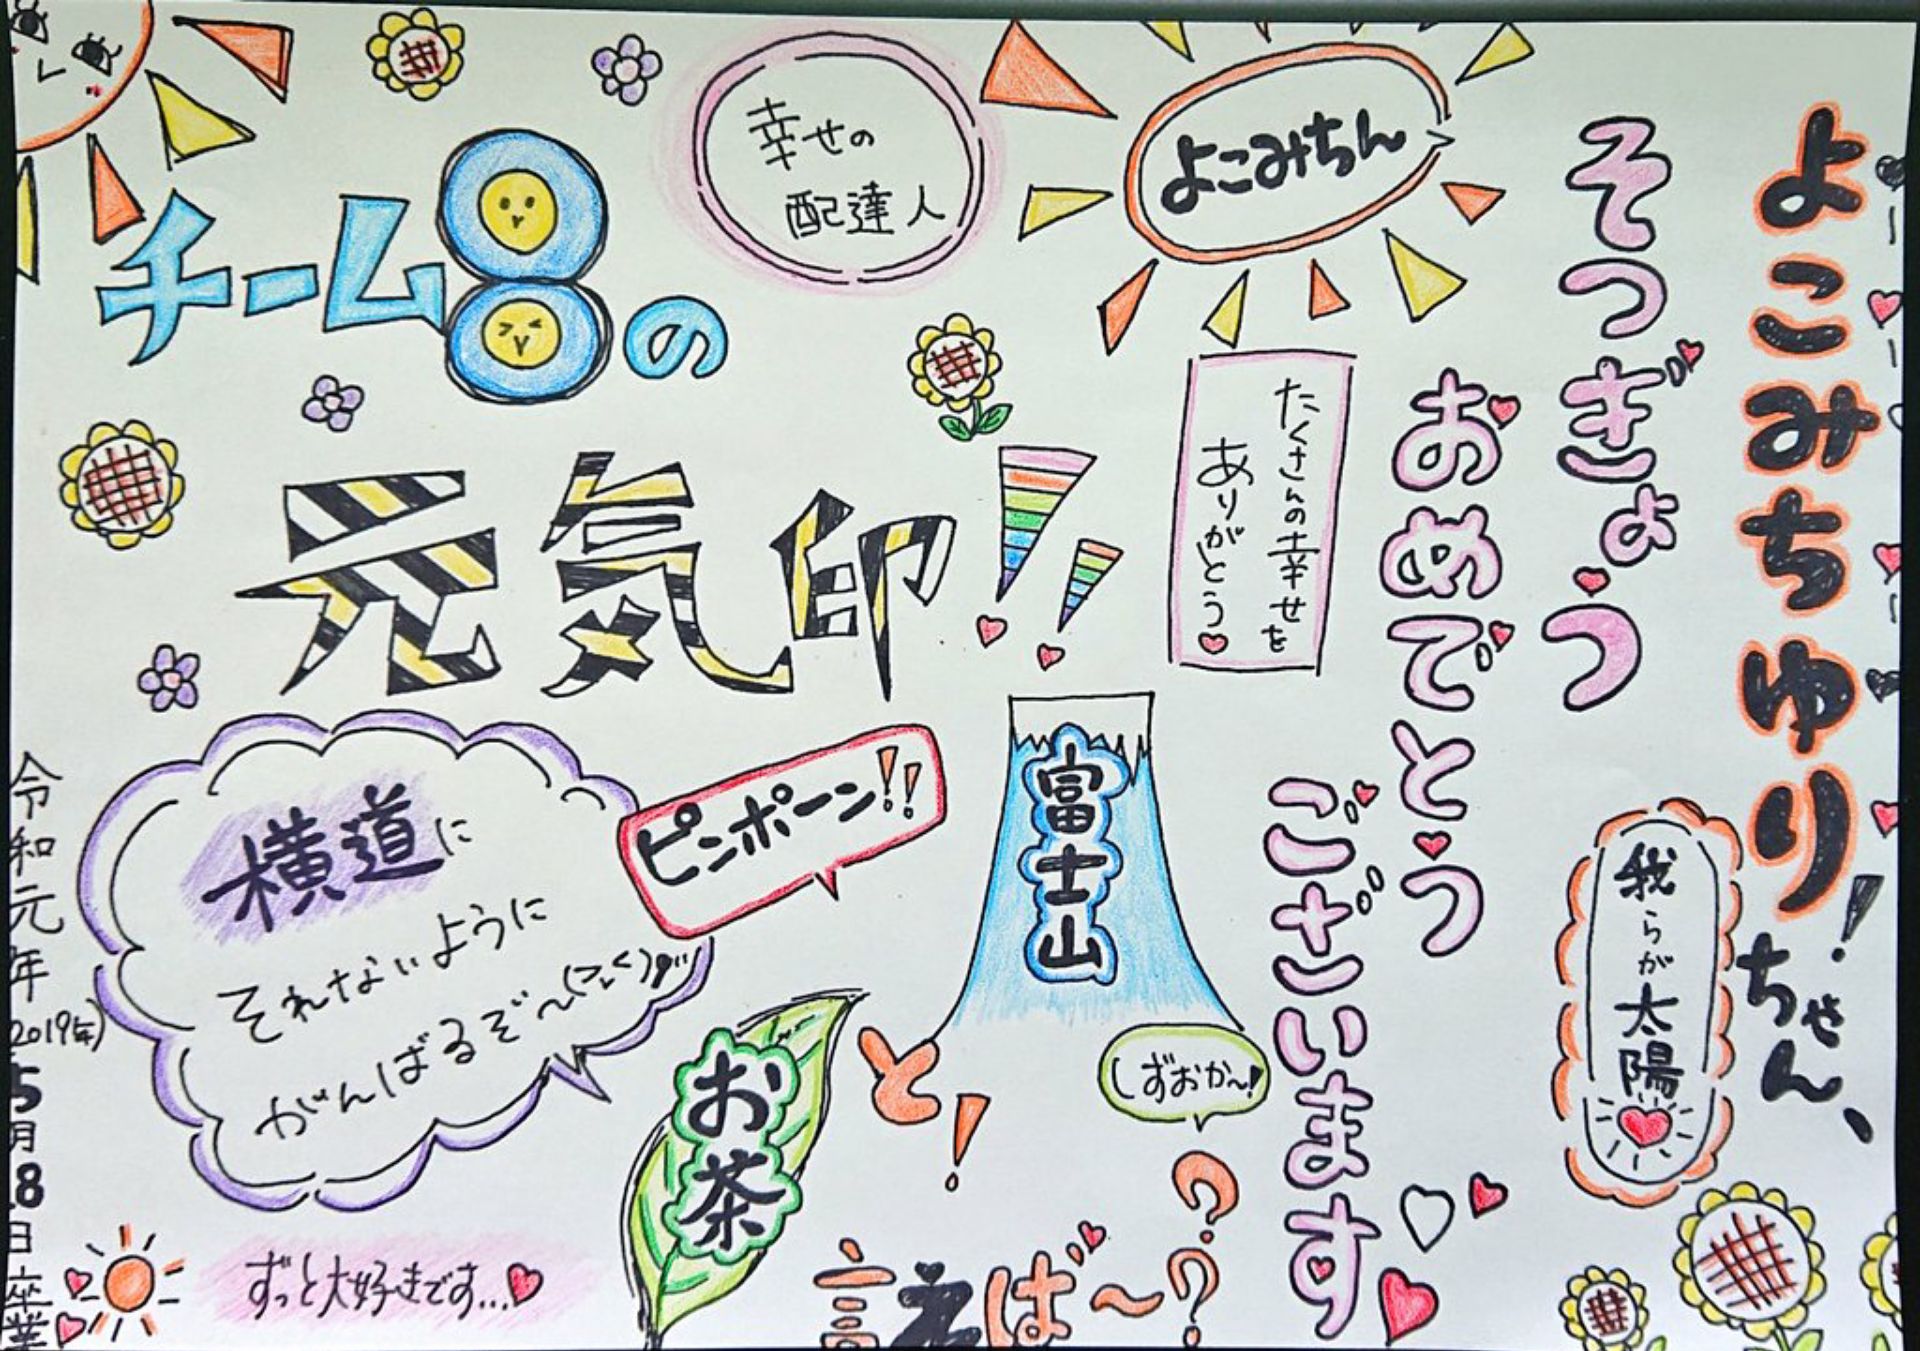 よこみちゆり!ちゃん、
そつぎょう
おめでとう
ございます
我らが太陽
よこみちん
幸せの
配達人
たくさんの幸せを
ありがとう
チーム8の
元気印!!
お茶
と!
富士山
言えば〜??
しずおか〜!
ピンポーン!!
横道に
それないように
がんばるぞ〜
ずっと大好きです...
令和元年(2019年)5月8日卒業